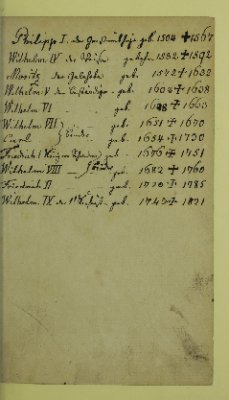 Philipp I. der Großmüthige geb. 1504 ✝ 1567
Wilhelm IV der Weise geboren 1532 ✝ 1592
Moritz der Gelehrte geb. 1572 ✝ 1632
Wilhelm V der Beständige geb. 1602 ✝ 1638
Wilhelm VI geb. ✝
Wilhelm VII } geb. 1651 ✝ 1670
Carl } Brüder geb. 1654 ✝ 1730
Friedrich I König von Schweden geb. 1676 ✝ 1751
Wilhelm VIII } Brüder geb. 1682 ✝ 1760
Friedrich II geb. 1720 ✝ 1785
Wilhelm IX der 1te geb. 1743 ✝ 1821